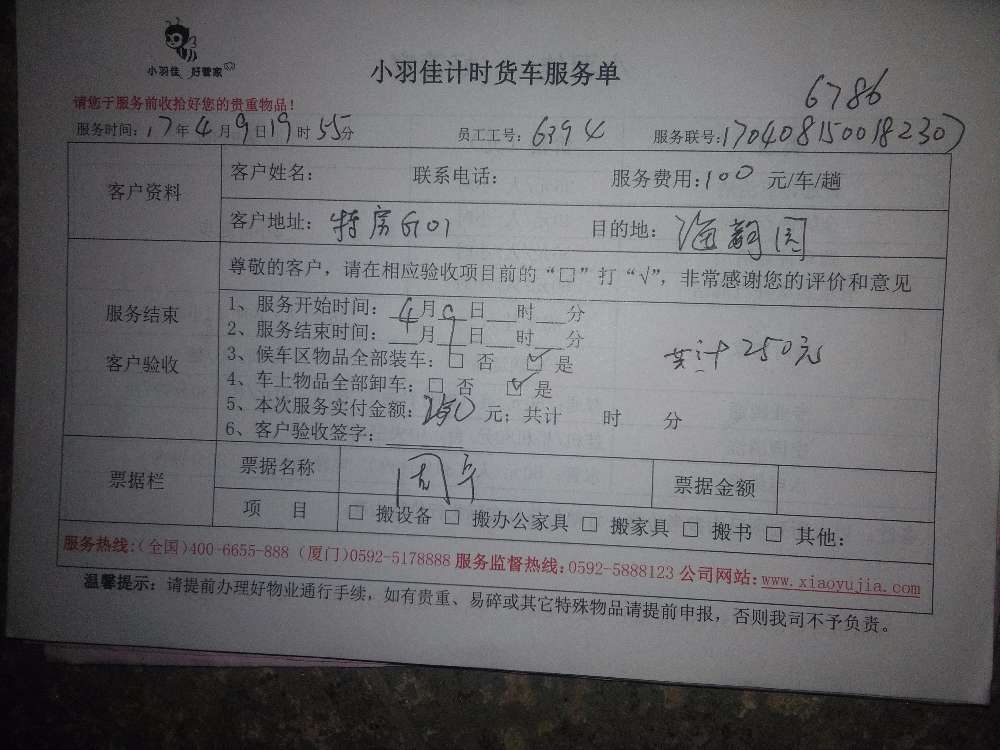 小羽佳 好管家
小羽佳计时货车服务单
6786
请您于服务前收拾好您的贵重物品！
服务时间：17年4月9日19时55分 员工工号：6394 服务联号：1704081500182307
客户资料
客户姓名： 联系电话： 服务费用：100 元/车/趟
客户地址：特房G01 目的地：海韵园
服务结束
客户验收
尊敬的客户，请在相应验收项目前的“□”打“√”，非常感谢您的评价和意见
1、服务开始时间：4月9日___时___分
2、服务结束时间：___月___日___时___分
3、候车区物品全部装车：□ 否 ☑ 是
共计250元
4、车上物品全部卸车：□ 否 ☑ 是
5、本次服务实付金额：250元；共计 时 分
6、客户验收签字：
票据栏
票据名称 票据金额
项 目 □ 搬设备 □ 搬办公家具 □ 搬家具 □ 搬书 □ 其他：
服务热线：(全国)400-6655-888 (厦门)0592-5178888 服务监督热线：0592-5888123 公司网站：www.xiaoyujia.com
温馨提示：请提前办理好物业通行手续，如有贵重、易碎或其它特殊物品请提前申报，否则我司不予负责。